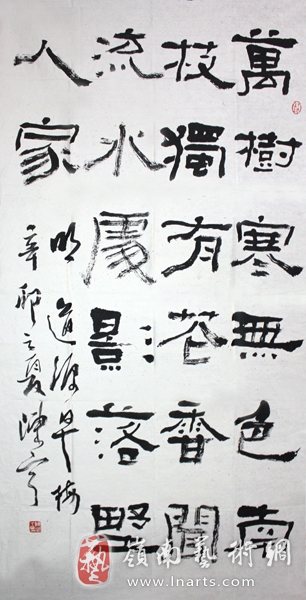 萬樹寒無色南
枝獨有花香聞
流水處影落野
人家
明道源早梅
辛卯之夏陳
藝 嶺南藝術網
www.lnarts.com